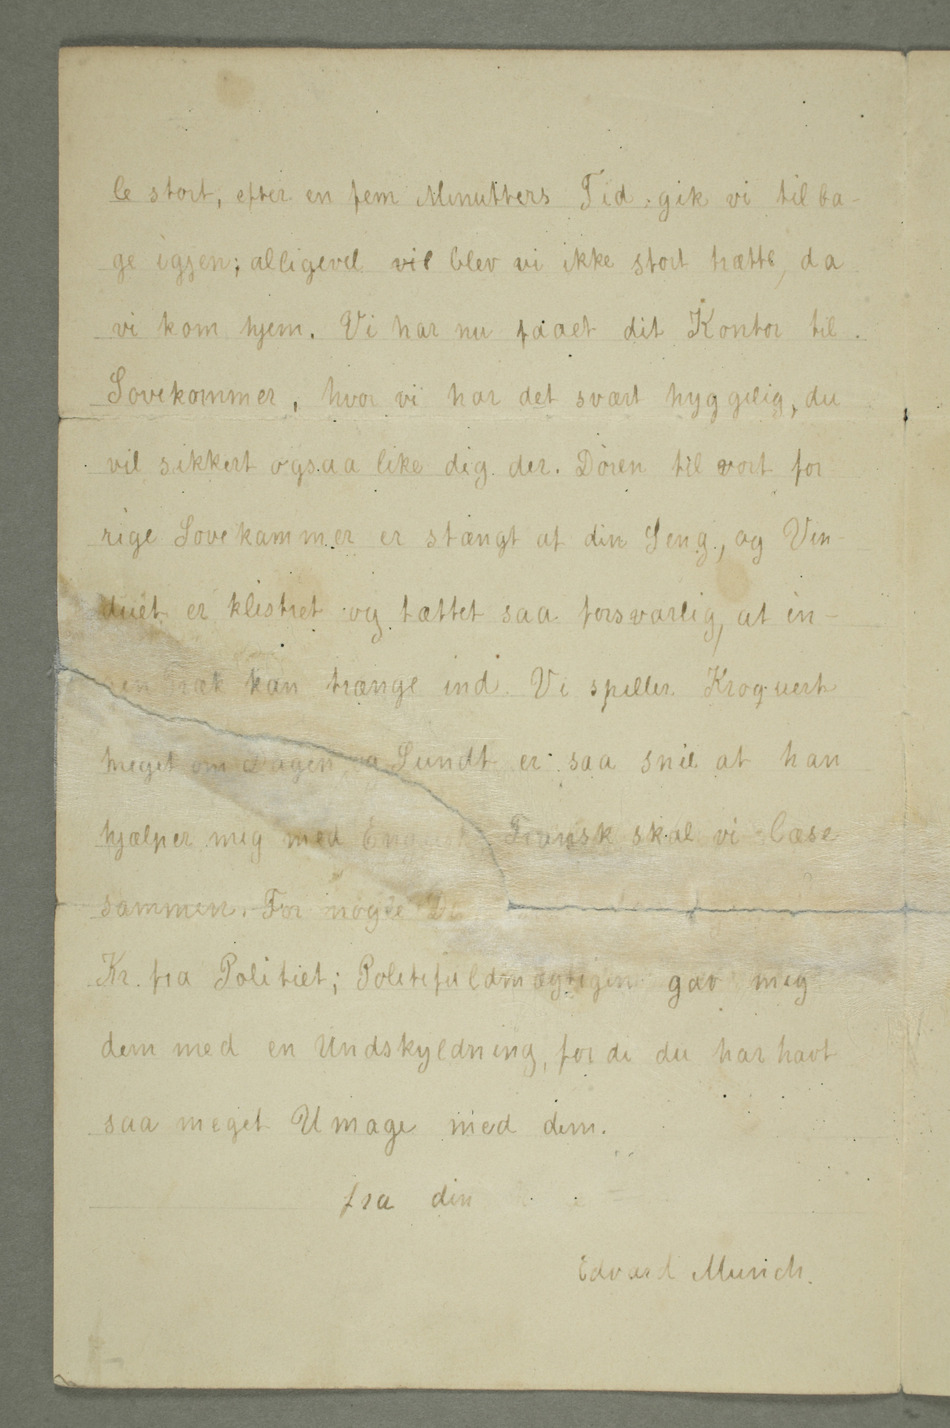 le stort, efter en fem Minutters Tid gik vi tilba-
ge igjen; alligevel vil blev vi ikke stort trætte, da
vi kom hjem. Vi har nu faaet dit Kontor til
Sovekammer, hvor vi har det svært hyggelig, du
vil sikkert ogsaa like dig der. Dören til vort for
rige Sovekammer er stængt af din Seng, og Vin-
duet er klistret og tættet saa forsvarlig, at in-
gen Træk kan trænge ind. Vi spiller Kroquert
meget om Dagen og Sundt er saa snil at han
hjælper mig med Engelsk, Fransk skal vi læse
sammen. For nogle
Kr. fra Politiet; Politifuldmægtigen gav mig
dem med en Undskyldning, for di du har havt
saa meget Umage med dem.
fra din
Edvard Munch.